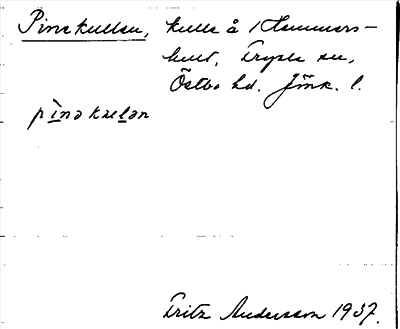 Pinekullen, kulle å 1 Hammars-
hult, Tryela sn,
Östbo hd. Jönk. l.
pìnəkulən
Fritz Andersson 1937.